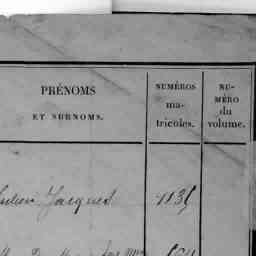 PRÉNOMS
ET SURNOMS.
NUMÉROS
ma-
tricoles.
NU-
MÉRO
du
volume.
Julien Jacques 1135